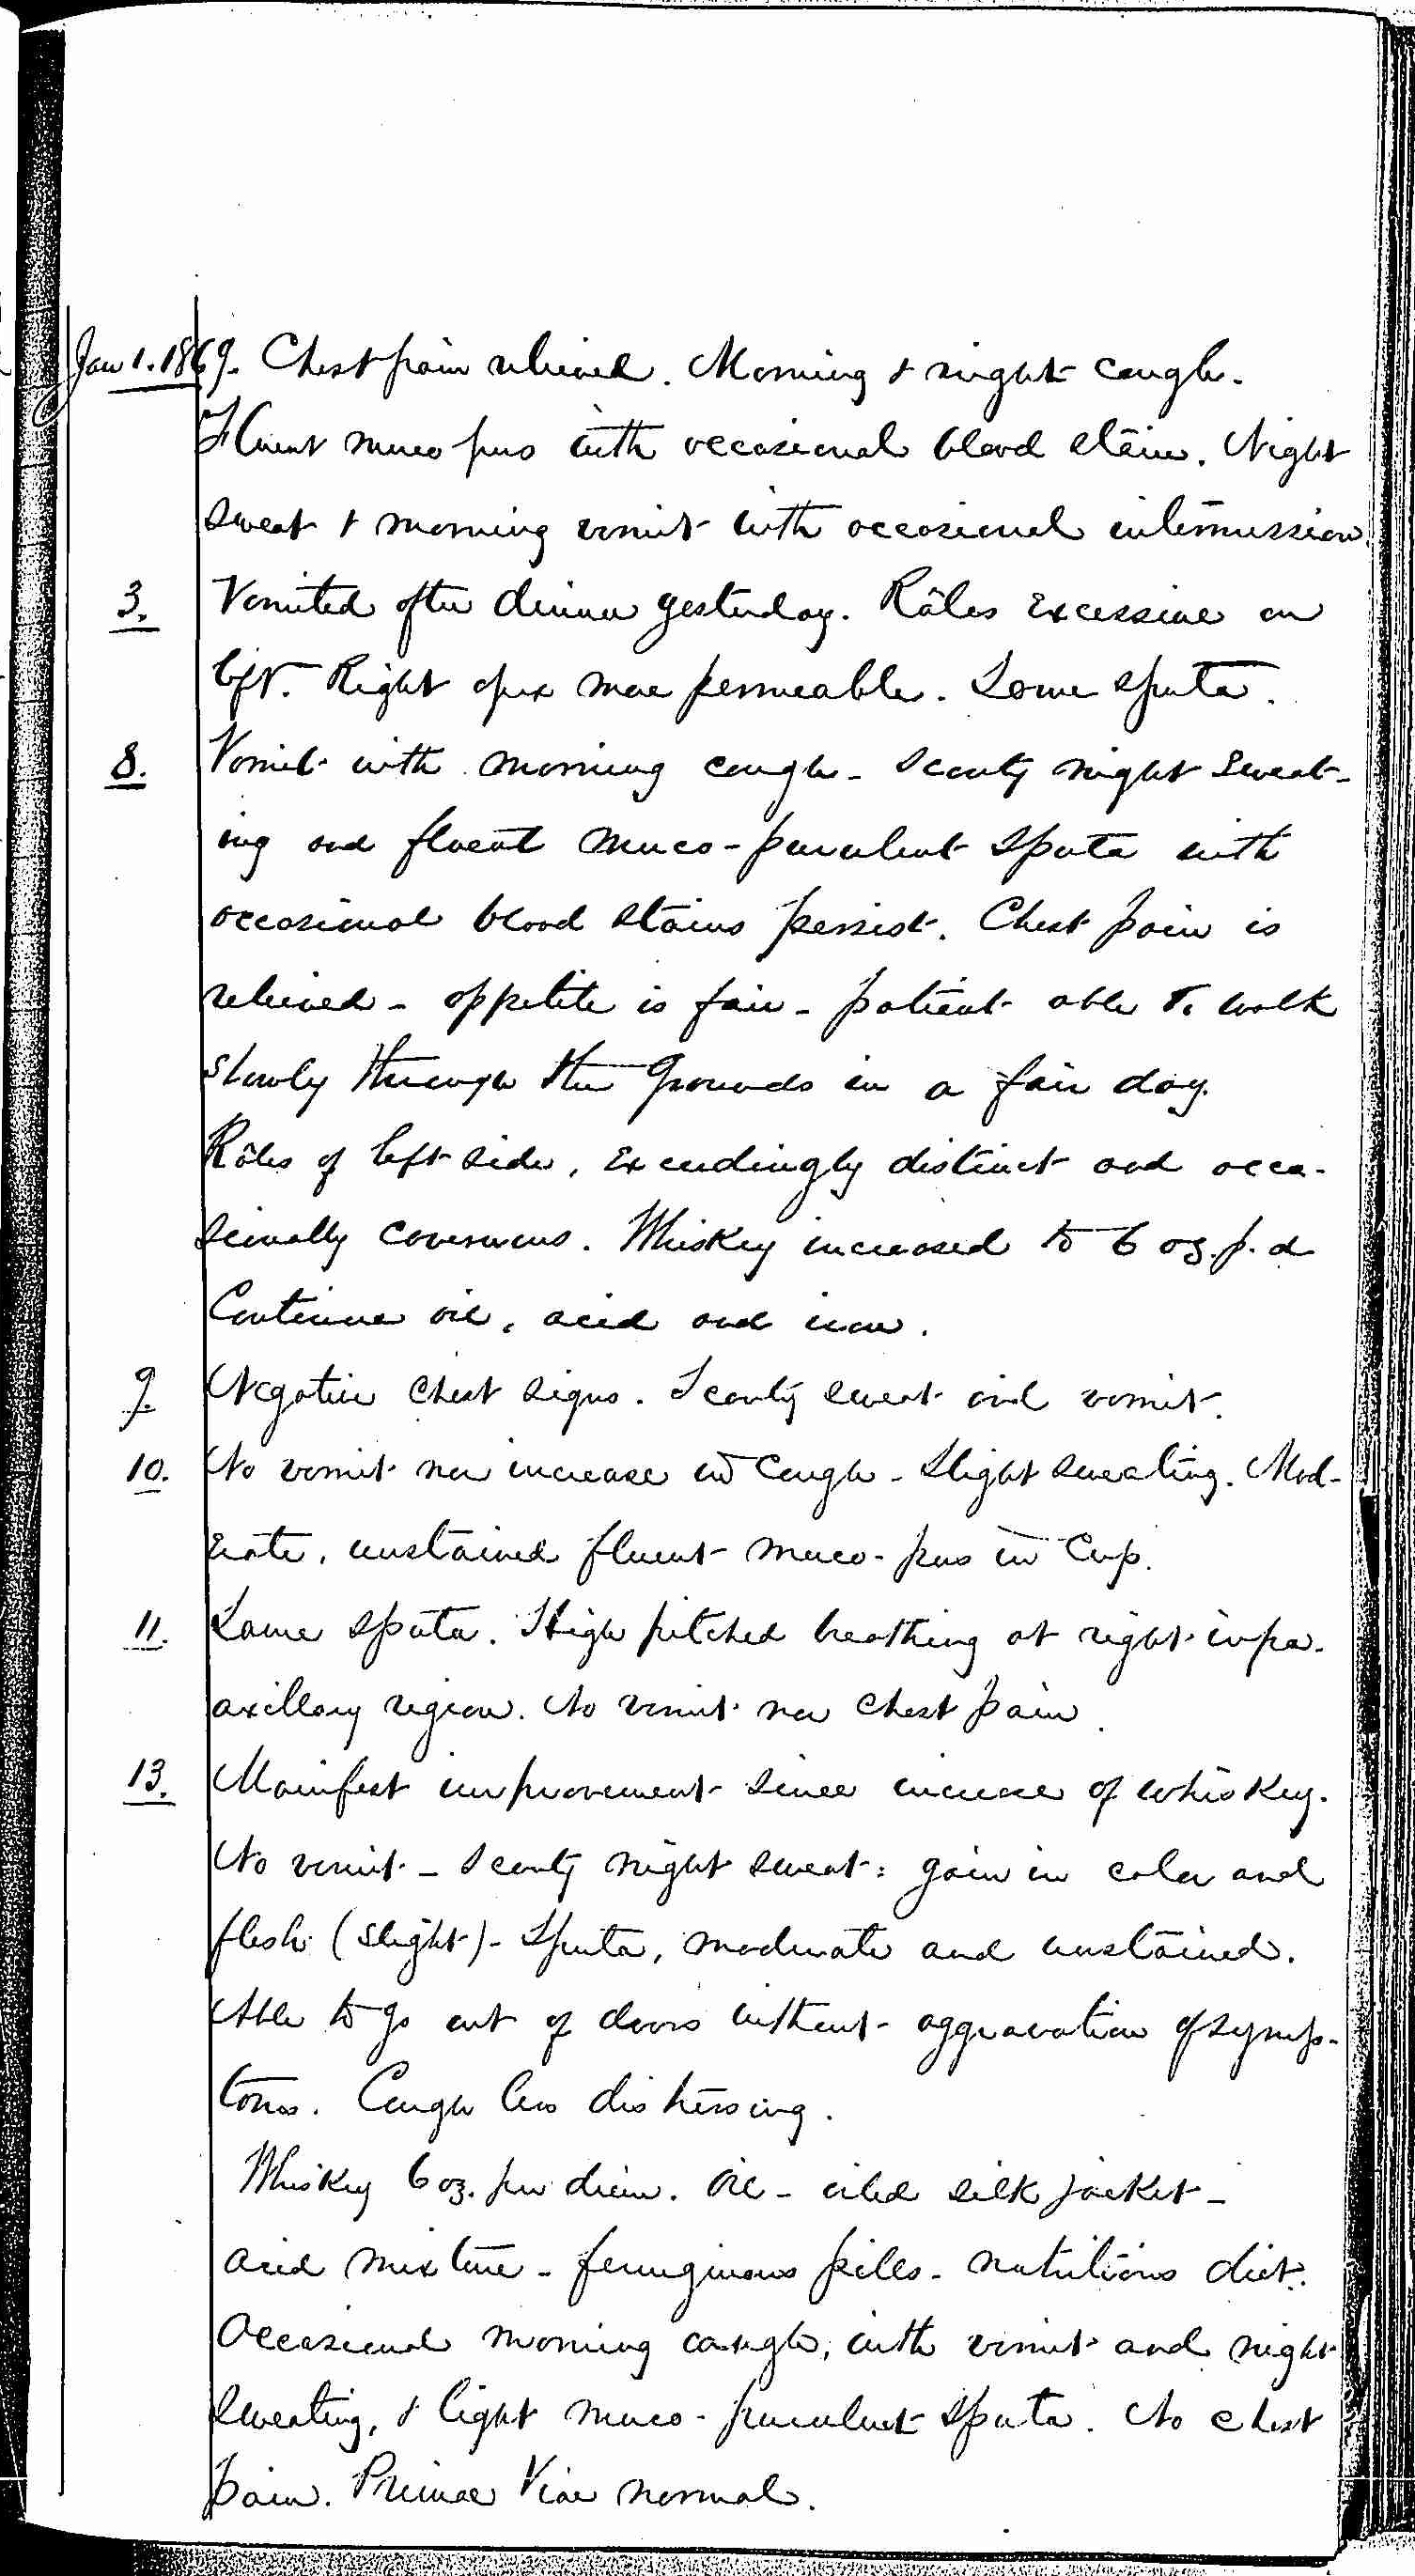 Jan 1. 1869. Chest pain relieved. Morning & night cough.
Fluent muco pus with occasional blood stain. Night
sweat & morning vomit with occasional intermission.
3. Vomited after dinner yesterday. Râles excessive on
left. Right apex more permeable. Some sputa.
8. Vomit with morning cough - scanty night sweat-
ing and fluent muco-purulent sputa with
occasional blood stains persist. Chest pain is
relieved - appetite is fair - patient able to walk
slowly through the grounds in a fair day.
Râles of left side, exceedingly distinct and occa-
sionally cavernous. Whiskey increased to 6 oz. p. d
Continue oil, acid and iron.
9. Negative chest signs. Scanty sweat and vomit.
10. No vomit nor increase in cough - Slight sweating. Mod-
erate, unstained fluent muco-pus in cup.
11. Same sputa. High pitched breathing at right infra-
axillary region. No vomit nor chest pain.
13. Manifest improvement since increase of whiskey.
No vomit - scanty night sweat: gain in color and
flesh (slight) - Sputa, moderate and unstained.
Able to go out of doors without aggravation of symp-
toms. Cough less distressing.
Whiskey 6 oz. per diem. Oil - oiled silk jacket -
acid mixture - ferruginous pills - nutritious diet.
Occasional morning cough, with vomit and night
sweating, & light muco-purulent sputa. No chest
pain. Primae Viae normal.